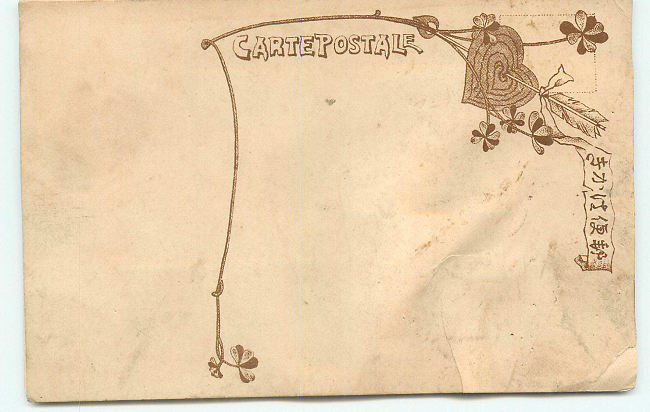 CARTE POSTALE
きかは便郵